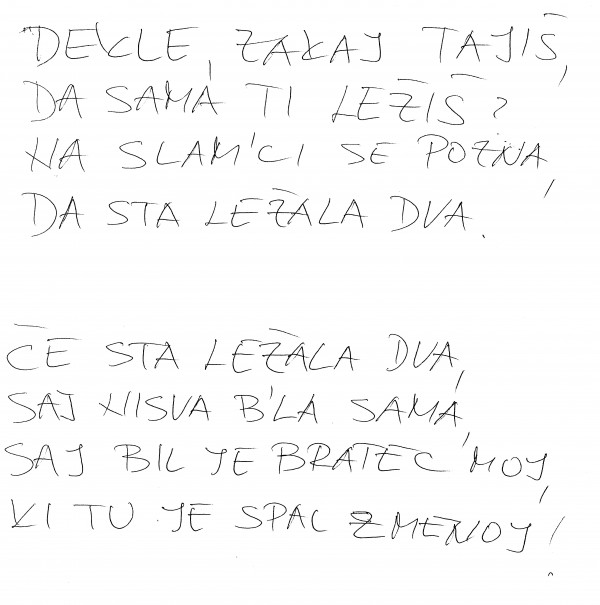 DEKLE, ZAKAJ TAJIŠ,
DA SAMA TI LEŽIŠ?
NA SLAM'CI SE POZNA,
DA STA LEŽALA DVA.
ČE STA LEŽALA DVA,
SAJ NISVA B'LA SAMA,
SAJ BIL JE BRATEC MOJ,
KI TU JE SPAL Z MENOJ!